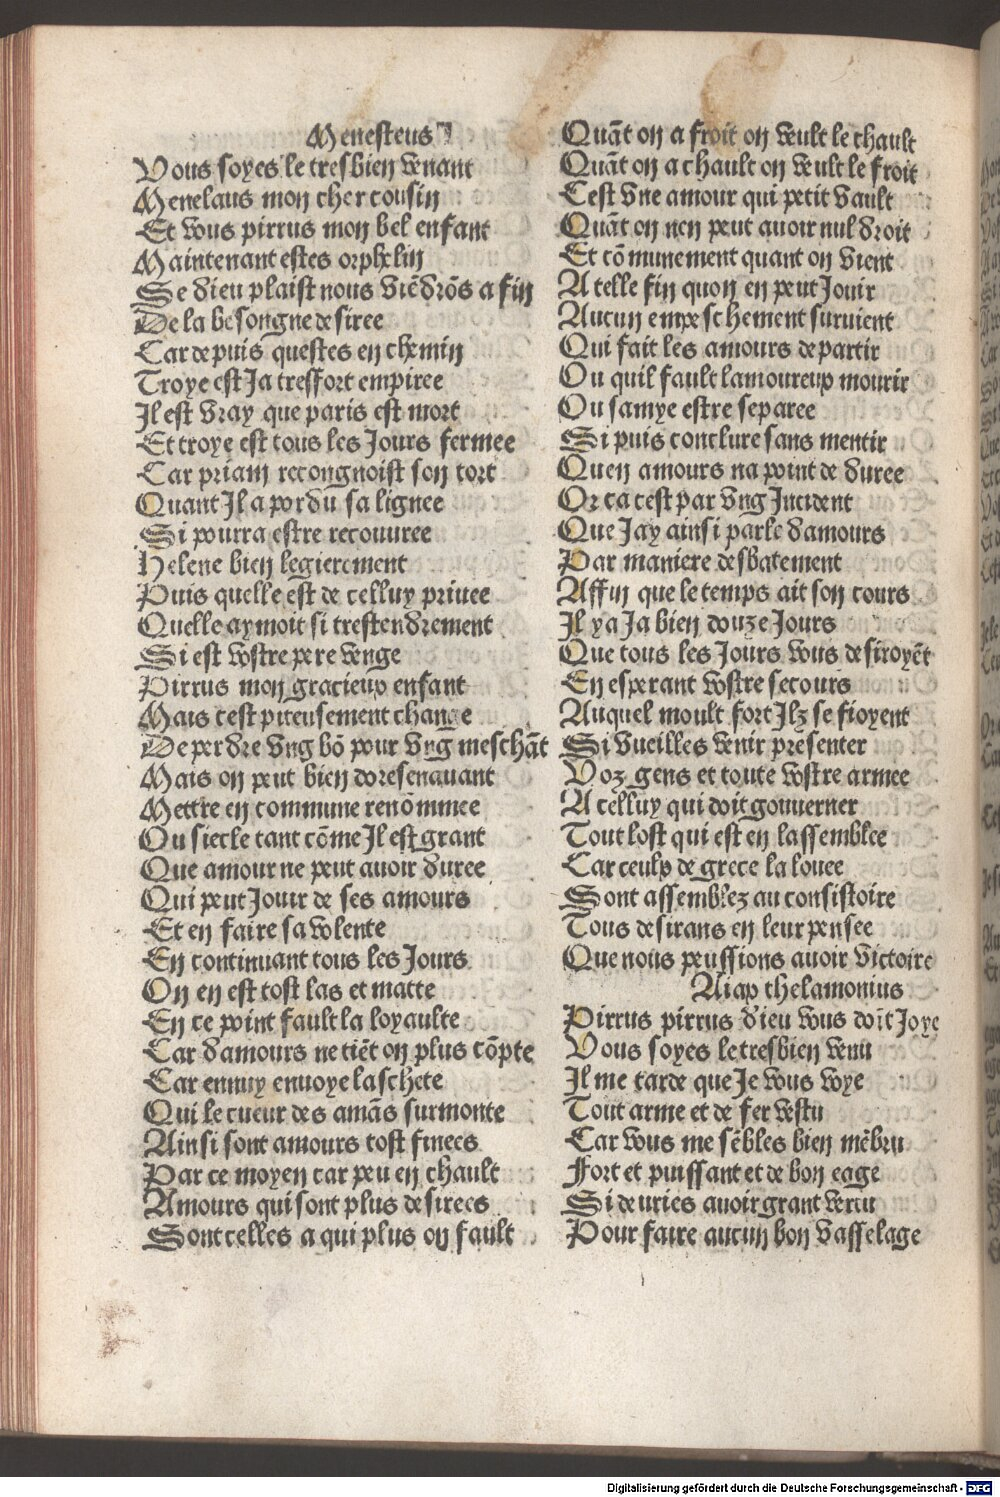 Menesteus
Vous soyes le tresbien venant
Menelaus mon cher cousin
Et vous pirrus mon bel enfant
Maintenant estes orphelin
Se dieu plaist nous viēdrōs a fin
De la besongne desiree
Car depuis questes en chemin
Troye est Ja tresfort empiree
Il est vray que paris est mort
Et troye est tous les Jours fermee
Car priam recongnoist son tort
Quant Il a perdu sa lignee
Si pourra estre recouuree
Helene bien legierement
Puis quelle est de celluy priuee
Quelle aymoit si trestendrement
Si est vostre pere venge
Pirrus mon gracieux enfant
Mais cest piteusement change
De perdre vng bō pour vng meschāt
Mais on peut bien doresenauant
Mettre en commune renōmmee
Ou siecle tant cōme Il est grant
Que amour ne peut auoir duree
Qui peut Jouir de ses amours
Et en faire sa volente
En continuant tous les Jours
On en est tost las et matte
En ce point fault la loyaulte
Car damours ne tiēt on plus cōpte
Car ennuy enuoye laschete
Qui le cueur des amās surmonte
Ainsi sont amours tost finees
Par ce moyen car peu en chault
Amours qui sont plus desirees
Sont celles a qui plus on fault
Quāt on a froit on veult le chault
Quāt on a chault on veult le froit
Cest vne amour qui petit vault
Quāt on nen peut auoir nul droit
Et cōmunement quant on vient
A telle fin quon en peut Jouir
Aucun empeschement suruient
Qui fait les amours departir
Ou quil fault lamoureux mourir
Ou samye estre separee
Si puis conclure sans mentir
Quen amours na point de duree
Or ca cest par vng Incident
Que Jay ainsi parle damours
Par maniere desbatement
Affin que le temps ait son cours
Il ya Ja bien douze Jours
Que tous les Jours vous desiroyēt
En esperant vostre secours
Auquel moult fort Ilz se fioyent
Si vueilles venir presenter
Voz gens et toute vostre armee
A celluy qui doit gouuerner
Tout lost qui est en lassemblee
Car ceulx de grece la louee
Sont assemblez au consistoire
Tous desirans en leur pensee
Que nous peussions auoir victoire
Aiax thelamonius
Pirrus pirrus dieu vous doit Joye
Vous soyes le tresbien venu
Il me tarde que Je vous voye
Tout arme et de fer vestu
Car vous me sēbles bien mēbru
Fort et puissant et de bon eage
Si deuries auoir grant vertu
Pour faire aucun bon vasselage
Digitalisierung gefördert durch die Deutsche Forschungsgemeinschaft - DFG